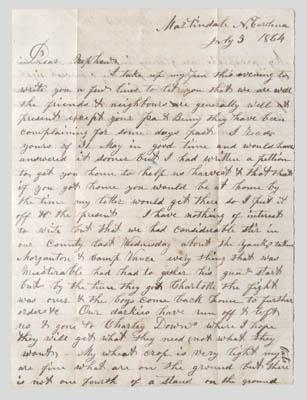 Martindale N. Carolina
July 3 1864
Dear Nephew
I take up my pen this evening to
write you a few lines to let you that we are well
the friends & neighbours are generally well at
present except your Being they have been
complaining for some days past I Recd
yours of May in good time and would have
answered it sooner but I had wrriten a petition
to get you home to help us harvest & that
if you got home you would be at home by
the time my letter would get there so I put it
off to the present I have nothing of interest
to write but that we had considirable stir in
our County last Wednesday about the Yanks taking
Morganton & Camp Vance every thing that was
Musterable had had to gether his gun & start
but by the time they got Charlotte the fight
was over & the boys come back home to further
orders Our darkies have run off & left
us & gone to Charley Down where I hope
they will get what they need (not what they
want) My wheat crop is very light my
are fine what are on the ground but there
is not one fourth of a stand on the ground